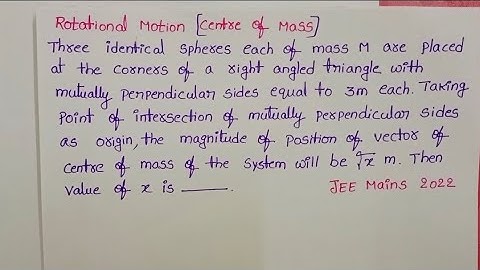 Rotational Motion [Centre of Mass]
Three identical spheres each of mass M are placed
at the corners of a right angled triangle with
mutually perpendicular sides equal to 3m each. Taking
point of intersection of mutually perpendicular sides
as origin, the magnitude of position of vector of
centre of mass of the system will be √x m. Then
value of x is ____.
JEE Mains 2022